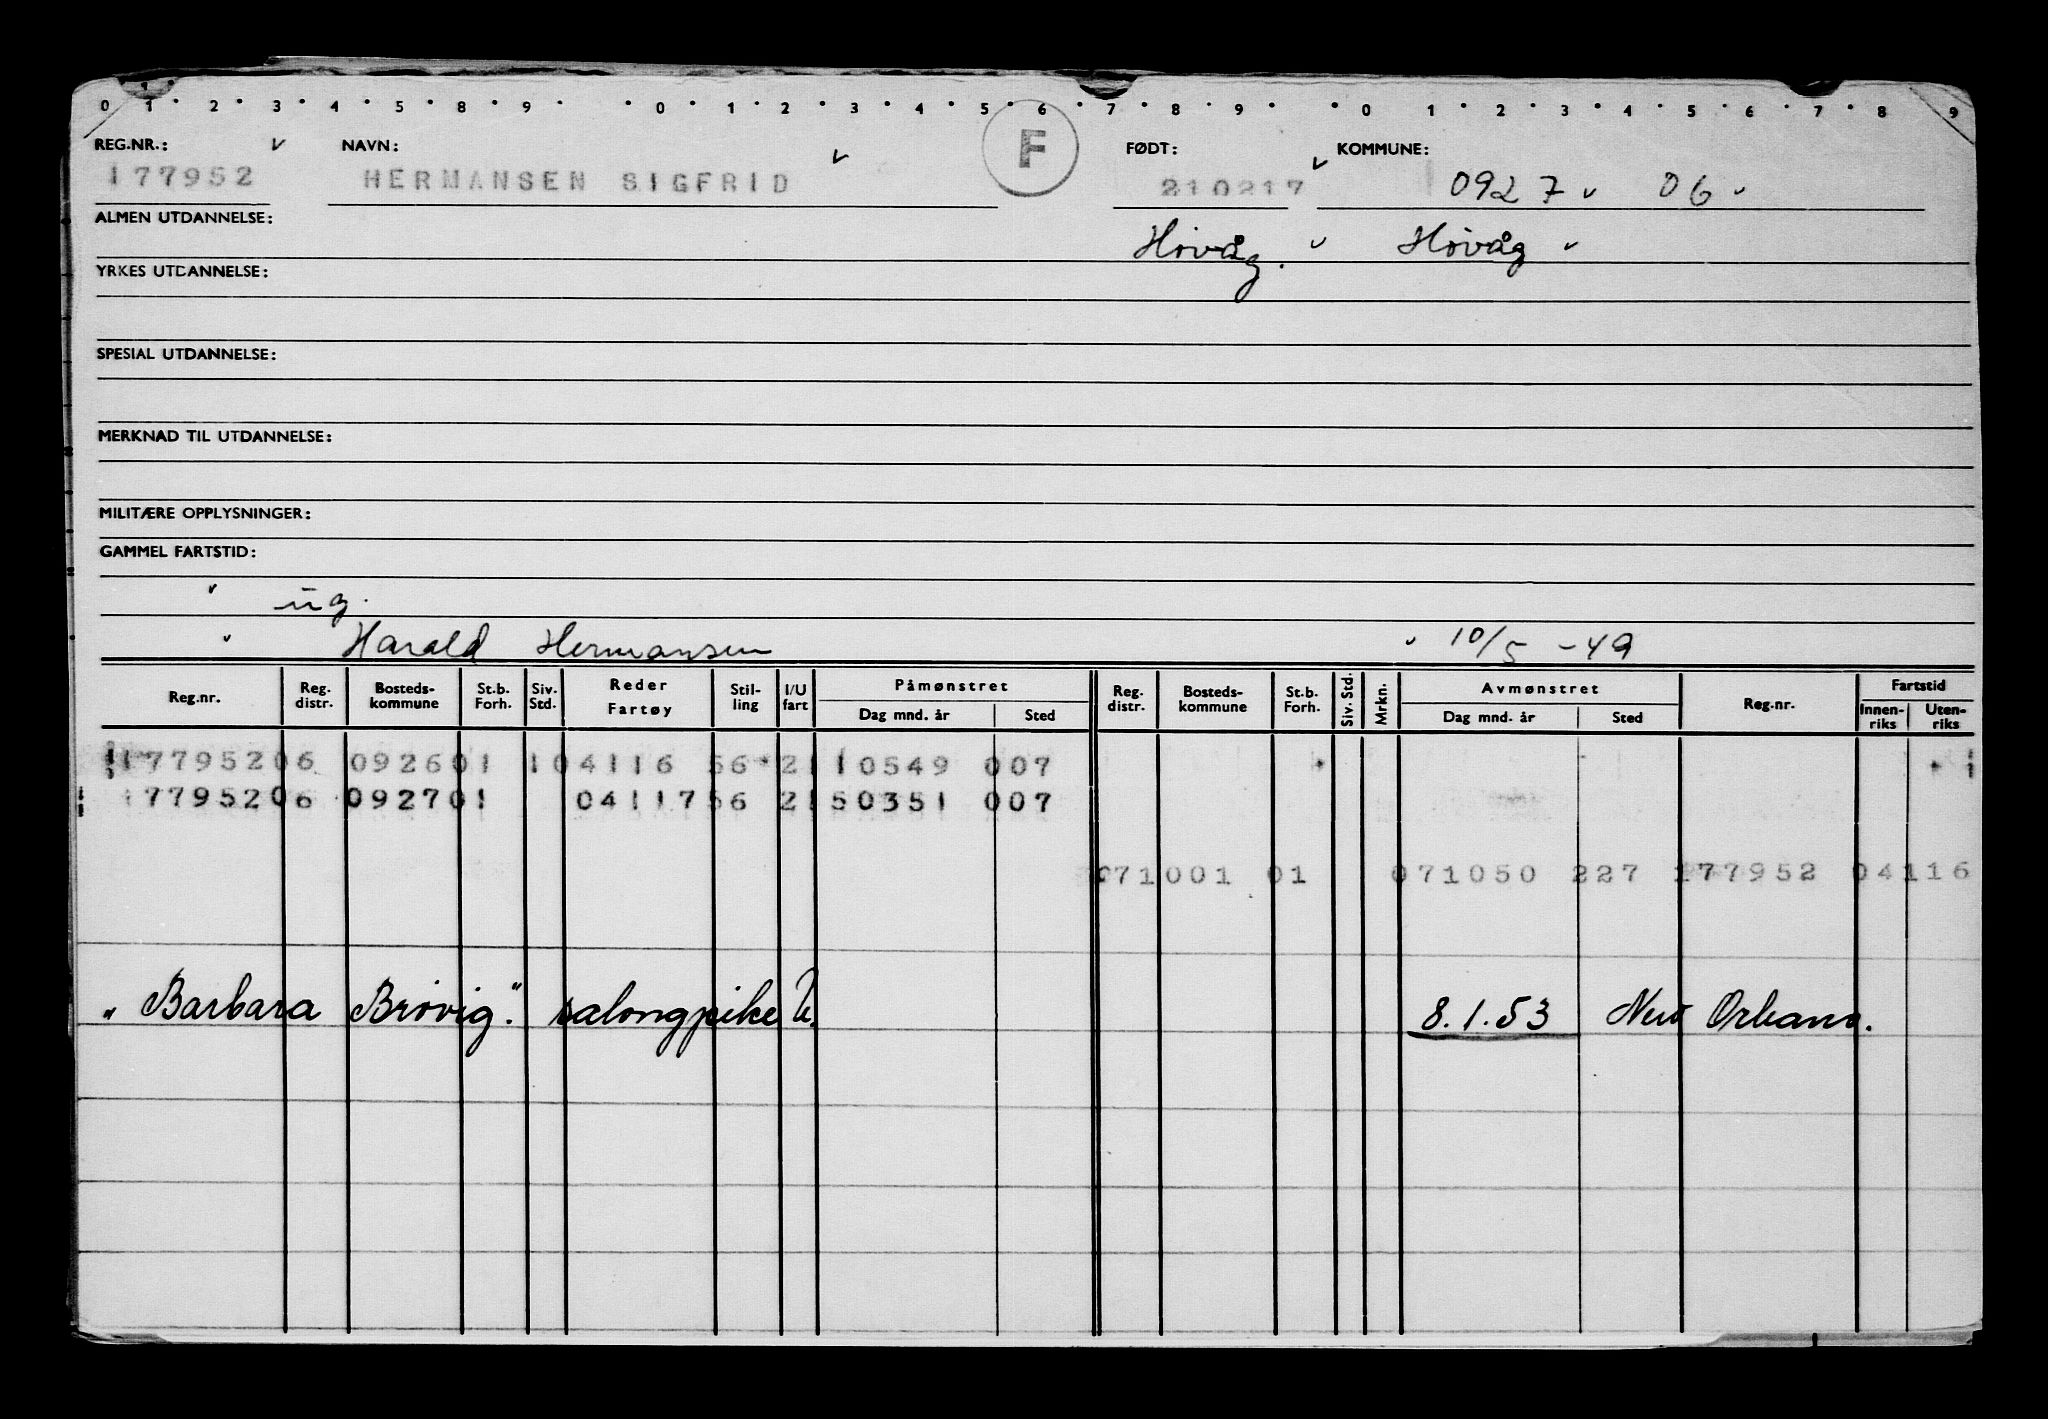 0 1 2 3 4 5 8 9 0 1 2 3 4 5 6 7 8 9 0 1 2 3 4 5 6 7 8 9
REG.NR.: NAVN: F FØDT: KOMMUNE:
177952 HERMANSEN SIGFRID 210217 0927 06
ALMEN UTDANNELSE: Høvåg. Høvåg
YRKES UTDANNELSE:
SPESIAL UTDANNELSE:
MERKNAD TIL UTDANNELSE:
MILITÆRE OPPLYSNINGER:
GAMMEL FARTSTID:
ug.
Harald Hermansen 10/5 -49
Reg.nr. Reg. distr. Bosteds-kommune St.b. Forh. Siv. Std. Reder Fartøy Stil-ling I/U fart Påmønstret Dag mnd. år Sted Reg. distr. Bosteds-kommune St.b. Forh. Siv. Std. Mrkn. Avmønstret Dag mnd. år Sted Reg.nr. Fartstid Innen-riks Uten-riks
177952 06 0926 01 1 04116 56 2 110549 007
177952 06 0927 01 04117 56 2 150351 007
071001 01 071050 227 177952 04116
„Barbara Brøvig." salongpike U. 8.1.53 New Orleans.